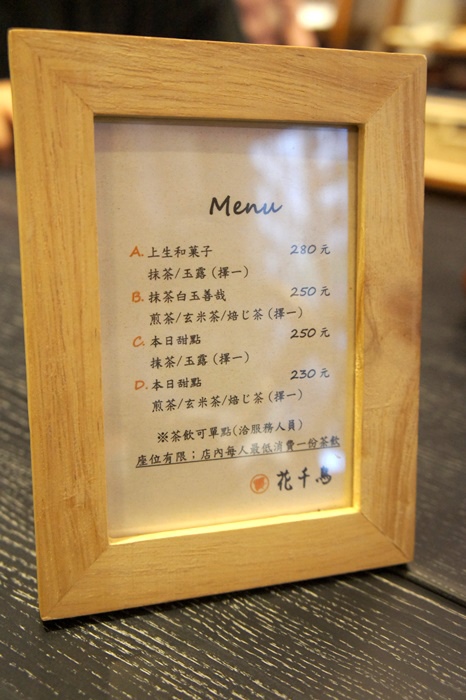 Menu
A. 上生和菓子 280元
抹茶/玉露 (擇一)
B. 抹茶白玉善哉 250元
煎茶/玄米茶/焙じ茶 (擇一)
C. 本日甜點 250元
抹茶/玉露 (擇一)
D. 本日甜點 230元
煎茶/玄米茶/焙じ茶 (擇一)
※茶飲可單點(洽服務人員)
座位有限；店內每人最低消費一份茶飲
花千鳥